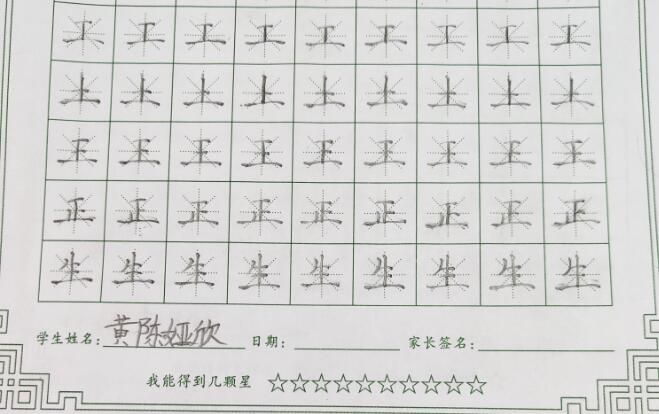 工 工 工 工 工 工 工 工 工
上 上 上 上 上 上 上 上 上
王 王 王 王 王 王 王 王 王
正 正 正 正 正 正 正 正 正
生 生 生 生 生 生 生 生 生
学生姓名: 黄陈娅欣 日期: 家长签名:
我能得到几颗星 ☆☆☆☆☆☆☆☆☆☆